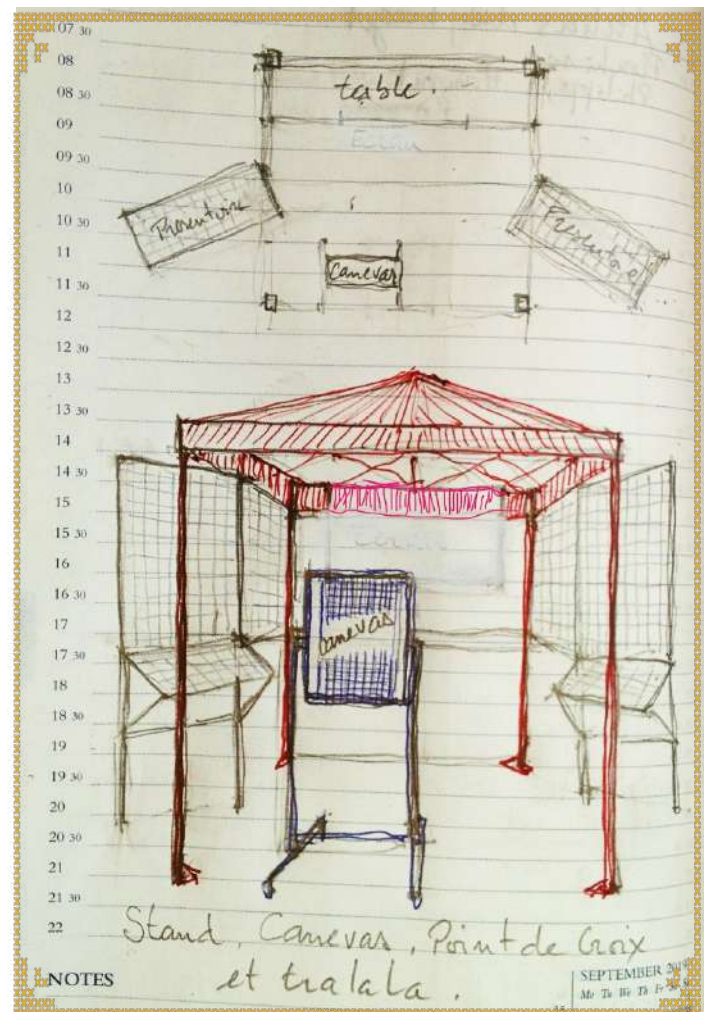 07 30
08
08 30
09
09 30
10
10 30
11
11 30
12
12 30
13
13 30
14
14 30
15
15 30
16
16 30
17
17 30
18
18 30
19
19 30
20
20 30
21
21 30
22
table
Ecran
Presentoire
Canevas
Ecran
canevas
Stand, Canevas, Point de Croix
et tralala.
NOTES
SEPTEMBER 2019
Mo Tu We Th Fr